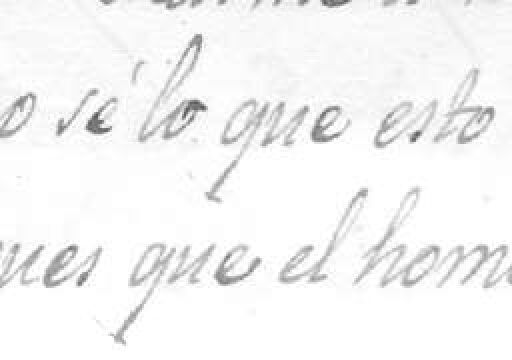 o sé lo que esto
ues que el hom